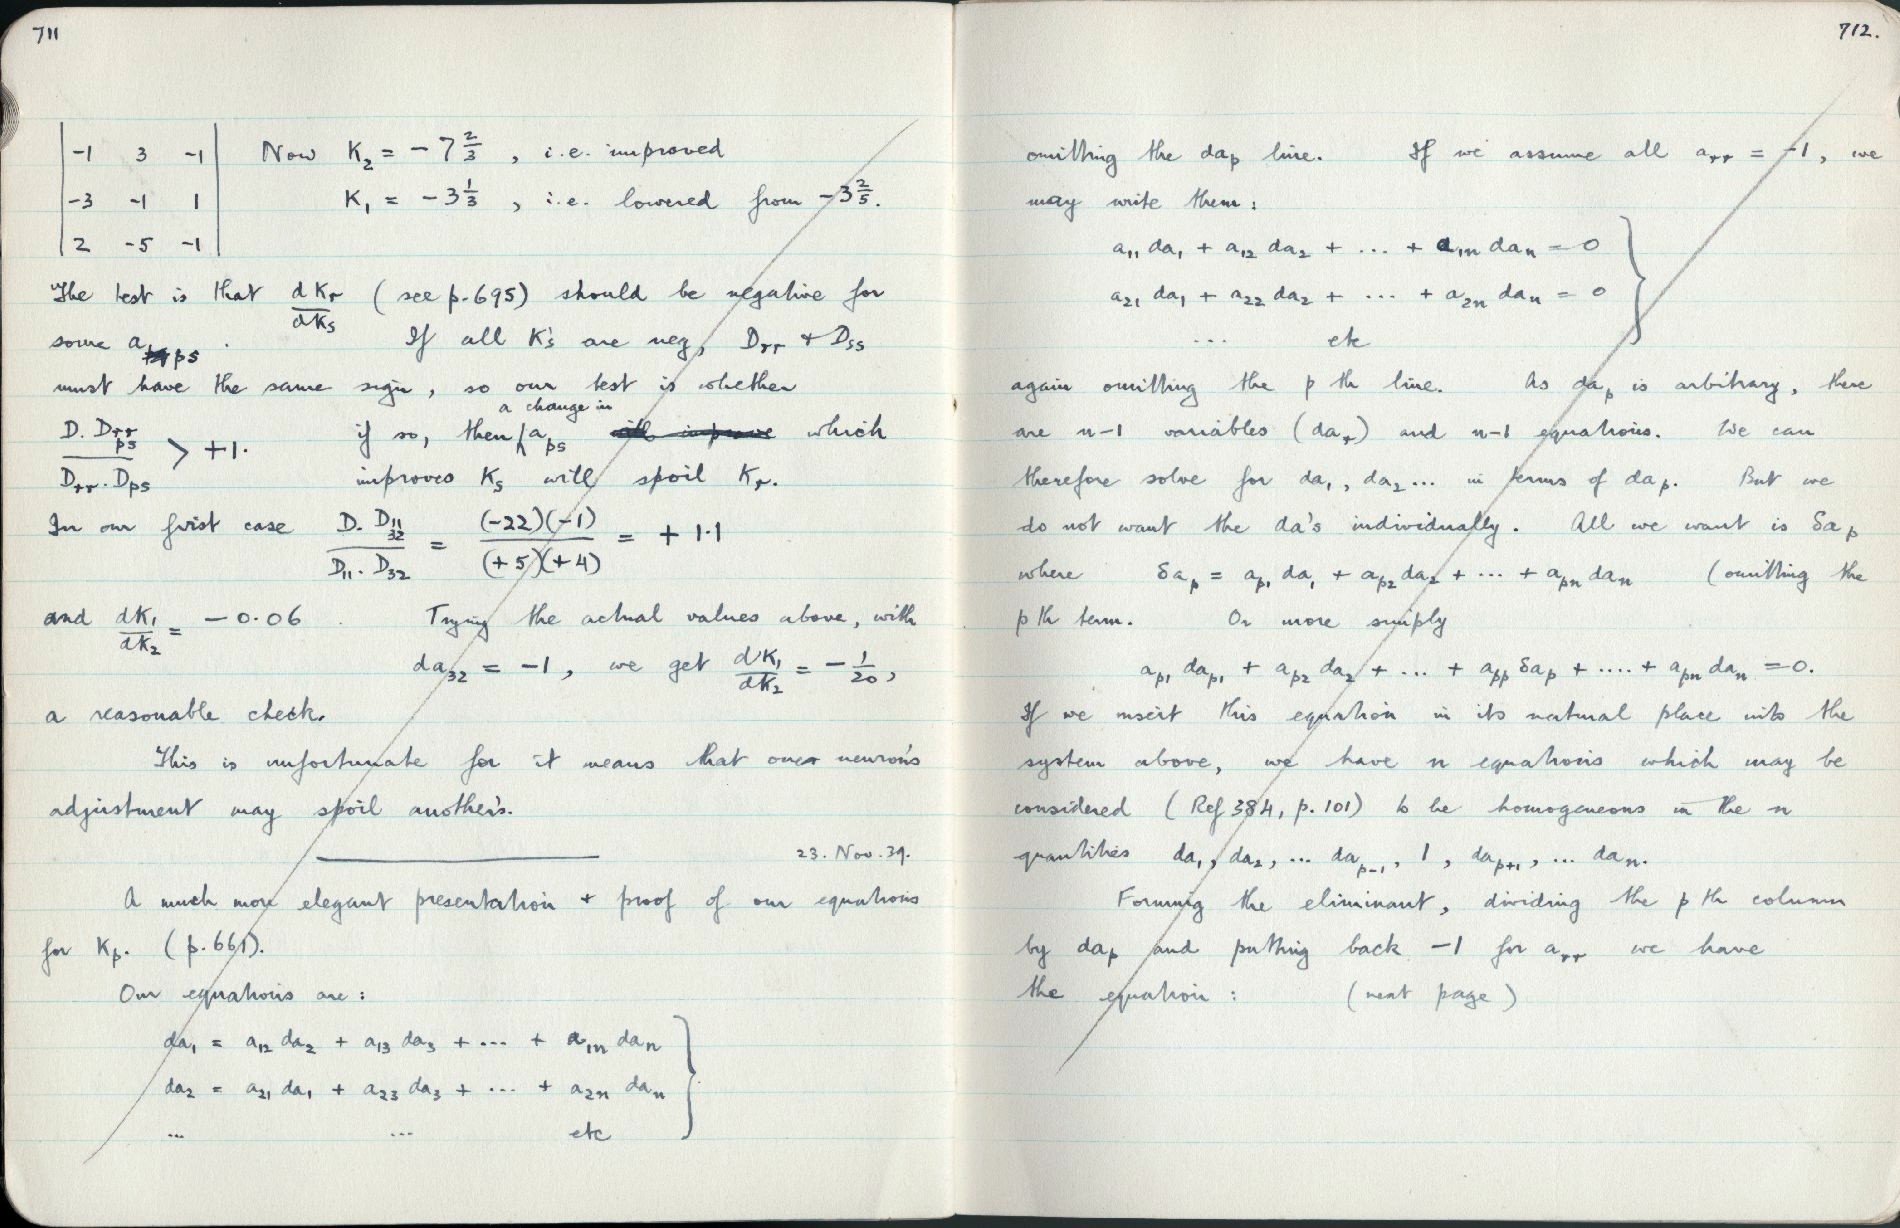 711
| -1 3 -1 | Now K₂ = - 7 2/3 , i.e. improved
| -3 -1 1 | K₁ = - 3 1/3 , i.e. lowered from - 3 2/5.
| 2 -5 -1 |
The test is that dKᵣ/dKₛ (see p.695) should be negative for
some a_ps . If all K's are neg, D_rr + D_ss
must have the same sign, so our test is whether
D. D_rr,ps / D_rr . D_ps > +1. if so, then a change in a_ps ~~will improve~~ which
improves Kₛ will spoil Kᵣ.
In our first case D. D_11,32 / D₁₁. D₃₂ = (-22)(-1) / (+5)(+4) = + 1·1
and dK₁/dK₂ = - 0·06 . Trying the actual values above, with
da₃₂ = -1, we get dK₁/dK₂ = - 1/20,
a reasonable check.
This is unfortunate for it means that one neuron's
adjustment may spoil another's.
23. Nov. 39.
A much more elegant presentation + proof of our equations
for Kₚ. (p.661).
Our equations are :
da₁ = a₁₂ da₂ + a₁₃ da₃ + ... + a₁ₙ daₙ }
da₂ = a₂₁ da₁ + a₂₃ da₃ + ... + a₂ₙ daₙ
... ... etc
712.
omitting the daₚ line. If we assume all a_rr = -1, we
may write them :
a₁₁ da₁ + a₁₂ da₂ + ... + a₁ₙ daₙ = 0 }
a₂₁ da₁ + a₂₂ da₂ + ... + a₂ₙ daₙ = 0
... etc
again omitting the p th line. As daₚ is arbitrary, there
are n-1 variables (daᵣ) and n-1 equations. We can
therefore solve for da₁, da₂ ... in terms of daₚ. But we
do not want the da's individually. All we want is δaₚ
where δaₚ = aₚ₁ da₁ + aₚ₂ da₂ + ... + aₚₙ daₙ (omitting the
p th term. Or more simply
aₚ₁ daₚ₁ + aₚ₂ da₂ + ... + aₚₚ δaₚ + .... + aₚₙ daₙ = 0.
If we insert this equation in its natural place into the
system above, we have n equations which may be
considered (Ref 384, p. 101) to be homogeneous in the n
quantities da₁, da₂, ... daₚ₋₁, 1, daₚ₊₁, ... daₙ.
Forming the eliminant, dividing the p th column
by daₚ and putting back -1 for a_rr we have
the equation : (next page)